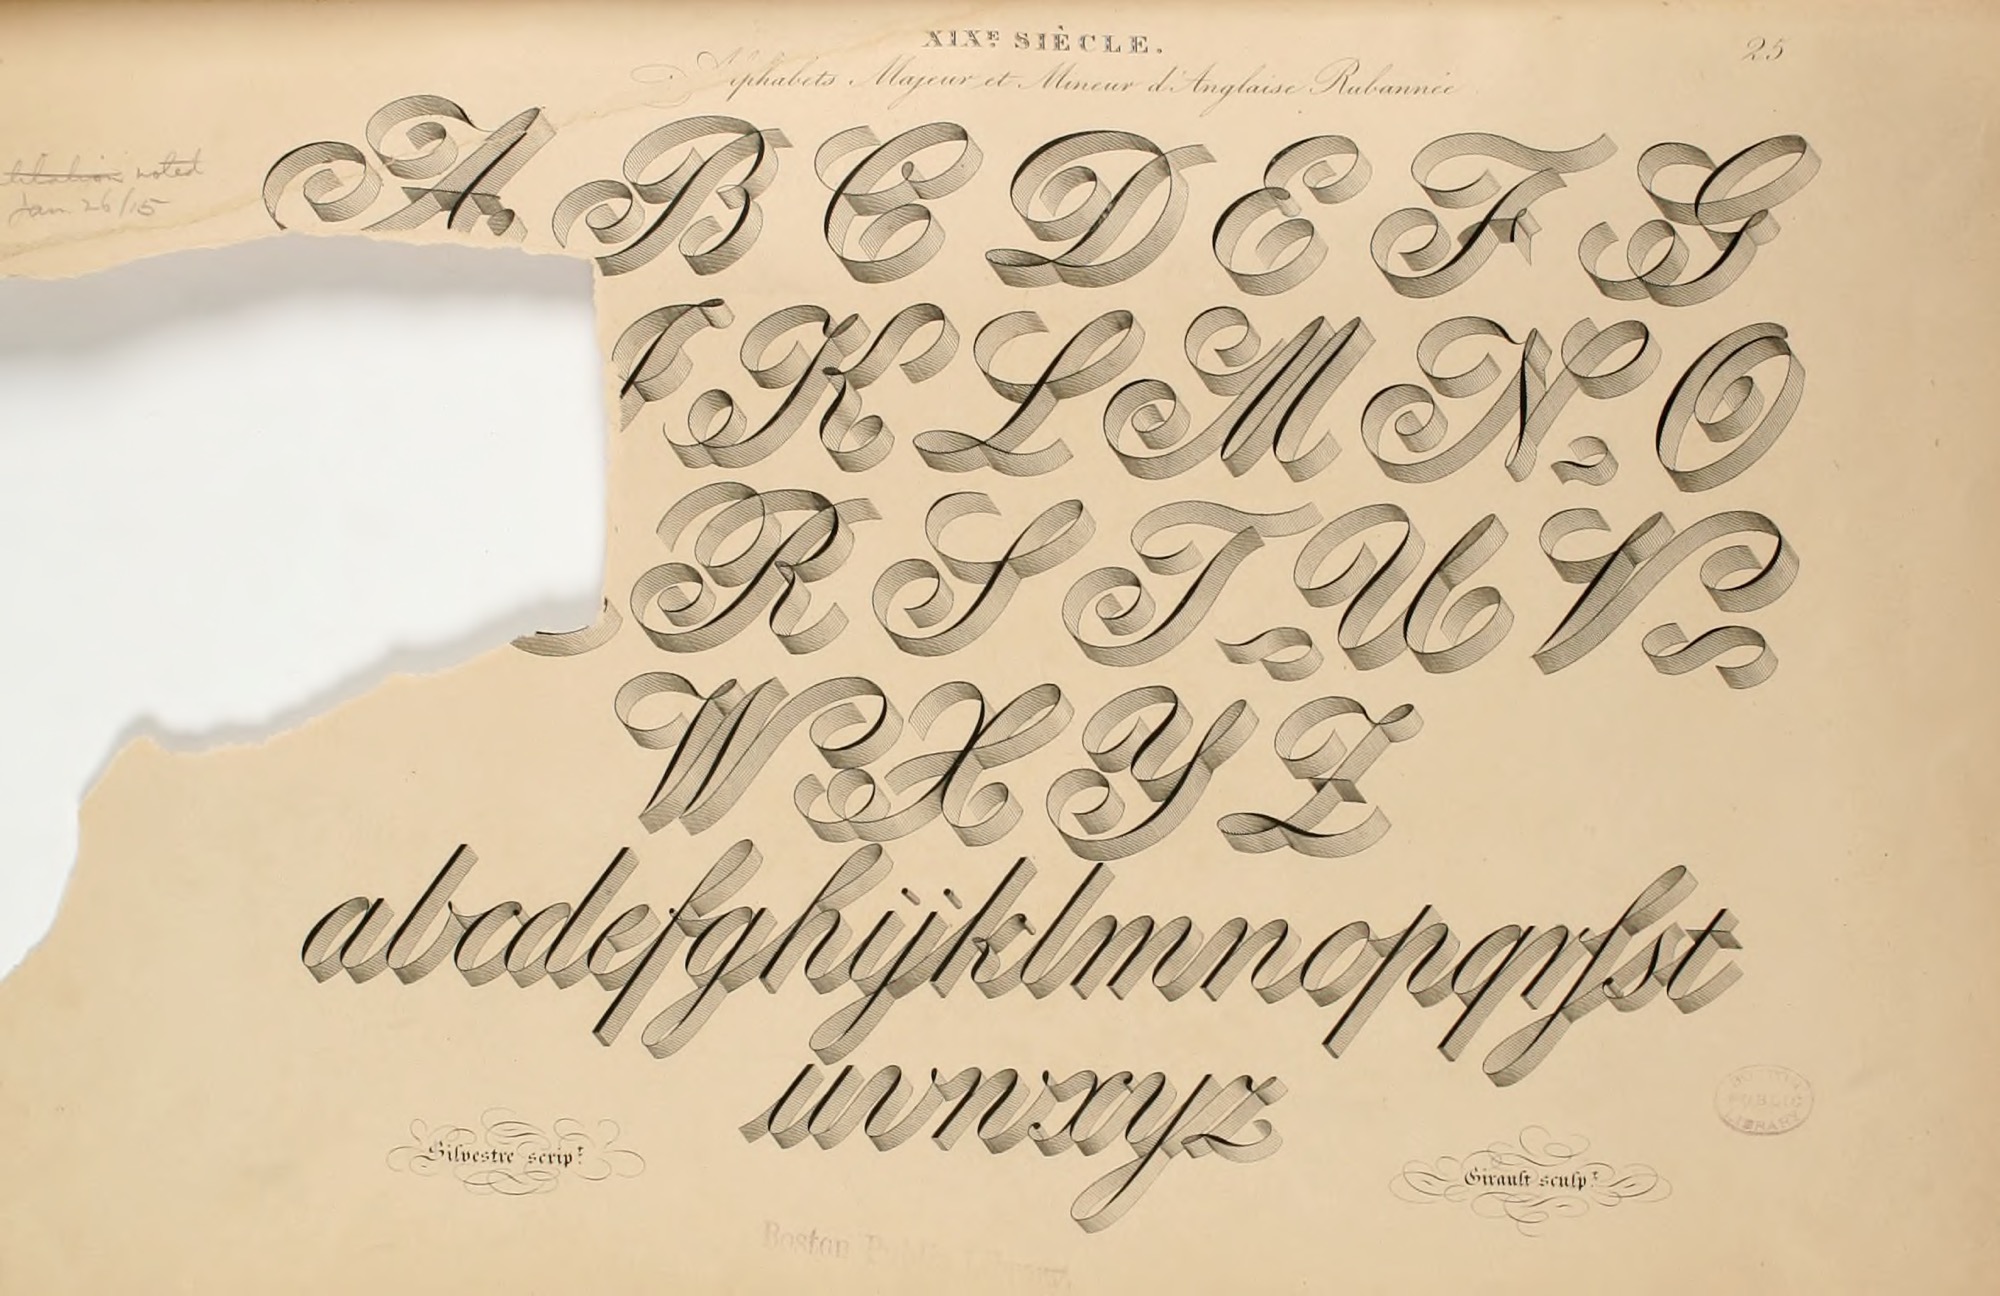 XIXᴱ SIÈCLE.
25
Alphabets Majeur et Mineur d'Anglaise Rubannée
noted
Jan. 26/15
A B C D E F G
K L M N O
R S T U V
W X Y Z
abcdefghijklmnopqrſst
uvwxyz
Silvestre scripᵗ.
Girault sculpᵗ.
PUBLIC
LIBRARY
Boston Public Library.